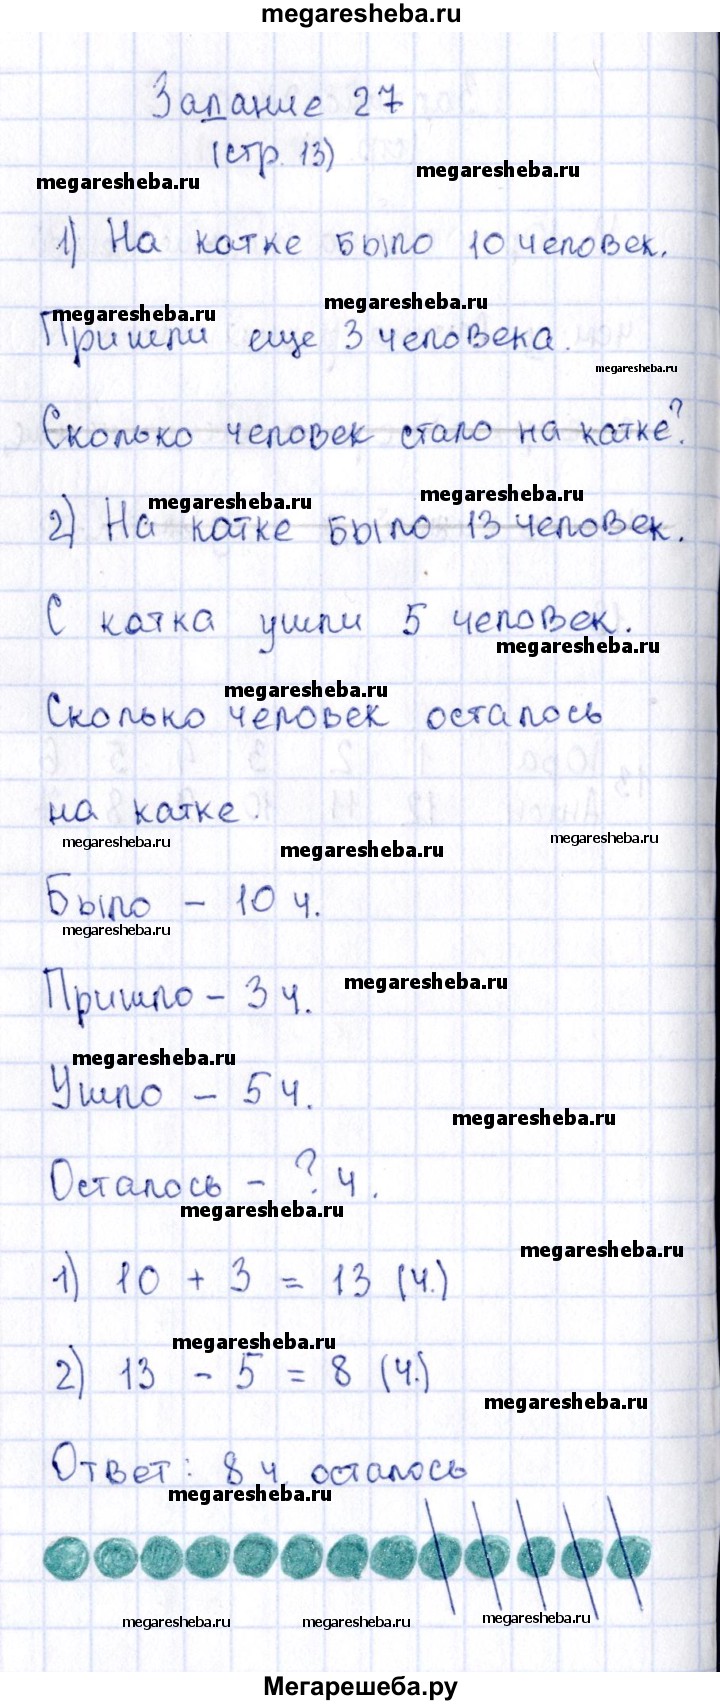 megaresheba.ru
Задание 27
(стр. 13)
megaresheba.ru
megaresheba.ru
1) На катке было 10 человек.
megaresheba.ru
megaresheba.ru
Пришли еще 3 человека.
megaresheba.ru
Сколько человек стало на катке?
megaresheba.ru
megaresheba.ru
2) На катке было 13 человек.
С катка ушли 5 человек.
megaresheba.ru
megaresheba.ru
Сколько человек осталось
на катке.
megaresheba.ru
megaresheba.ru
megaresheba.ru
Было - 10 ч.
megaresheba.ru
Пришло - 3 ч.
megaresheba.ru
megaresheba.ru
Ушло - 5 ч.
megaresheba.ru
Осталось - ? ч.
megaresheba.ru
megaresheba.ru
1) 10 + 3 = 13 (ч.)
megaresheba.ru
2) 13 - 5 = 8 (ч.)
megaresheba.ru
Ответ: 8 ч. осталось
megaresheba.ru
megaresheba.ru
megaresheba.ru
megaresheba.ru
Мегарешеба.ру